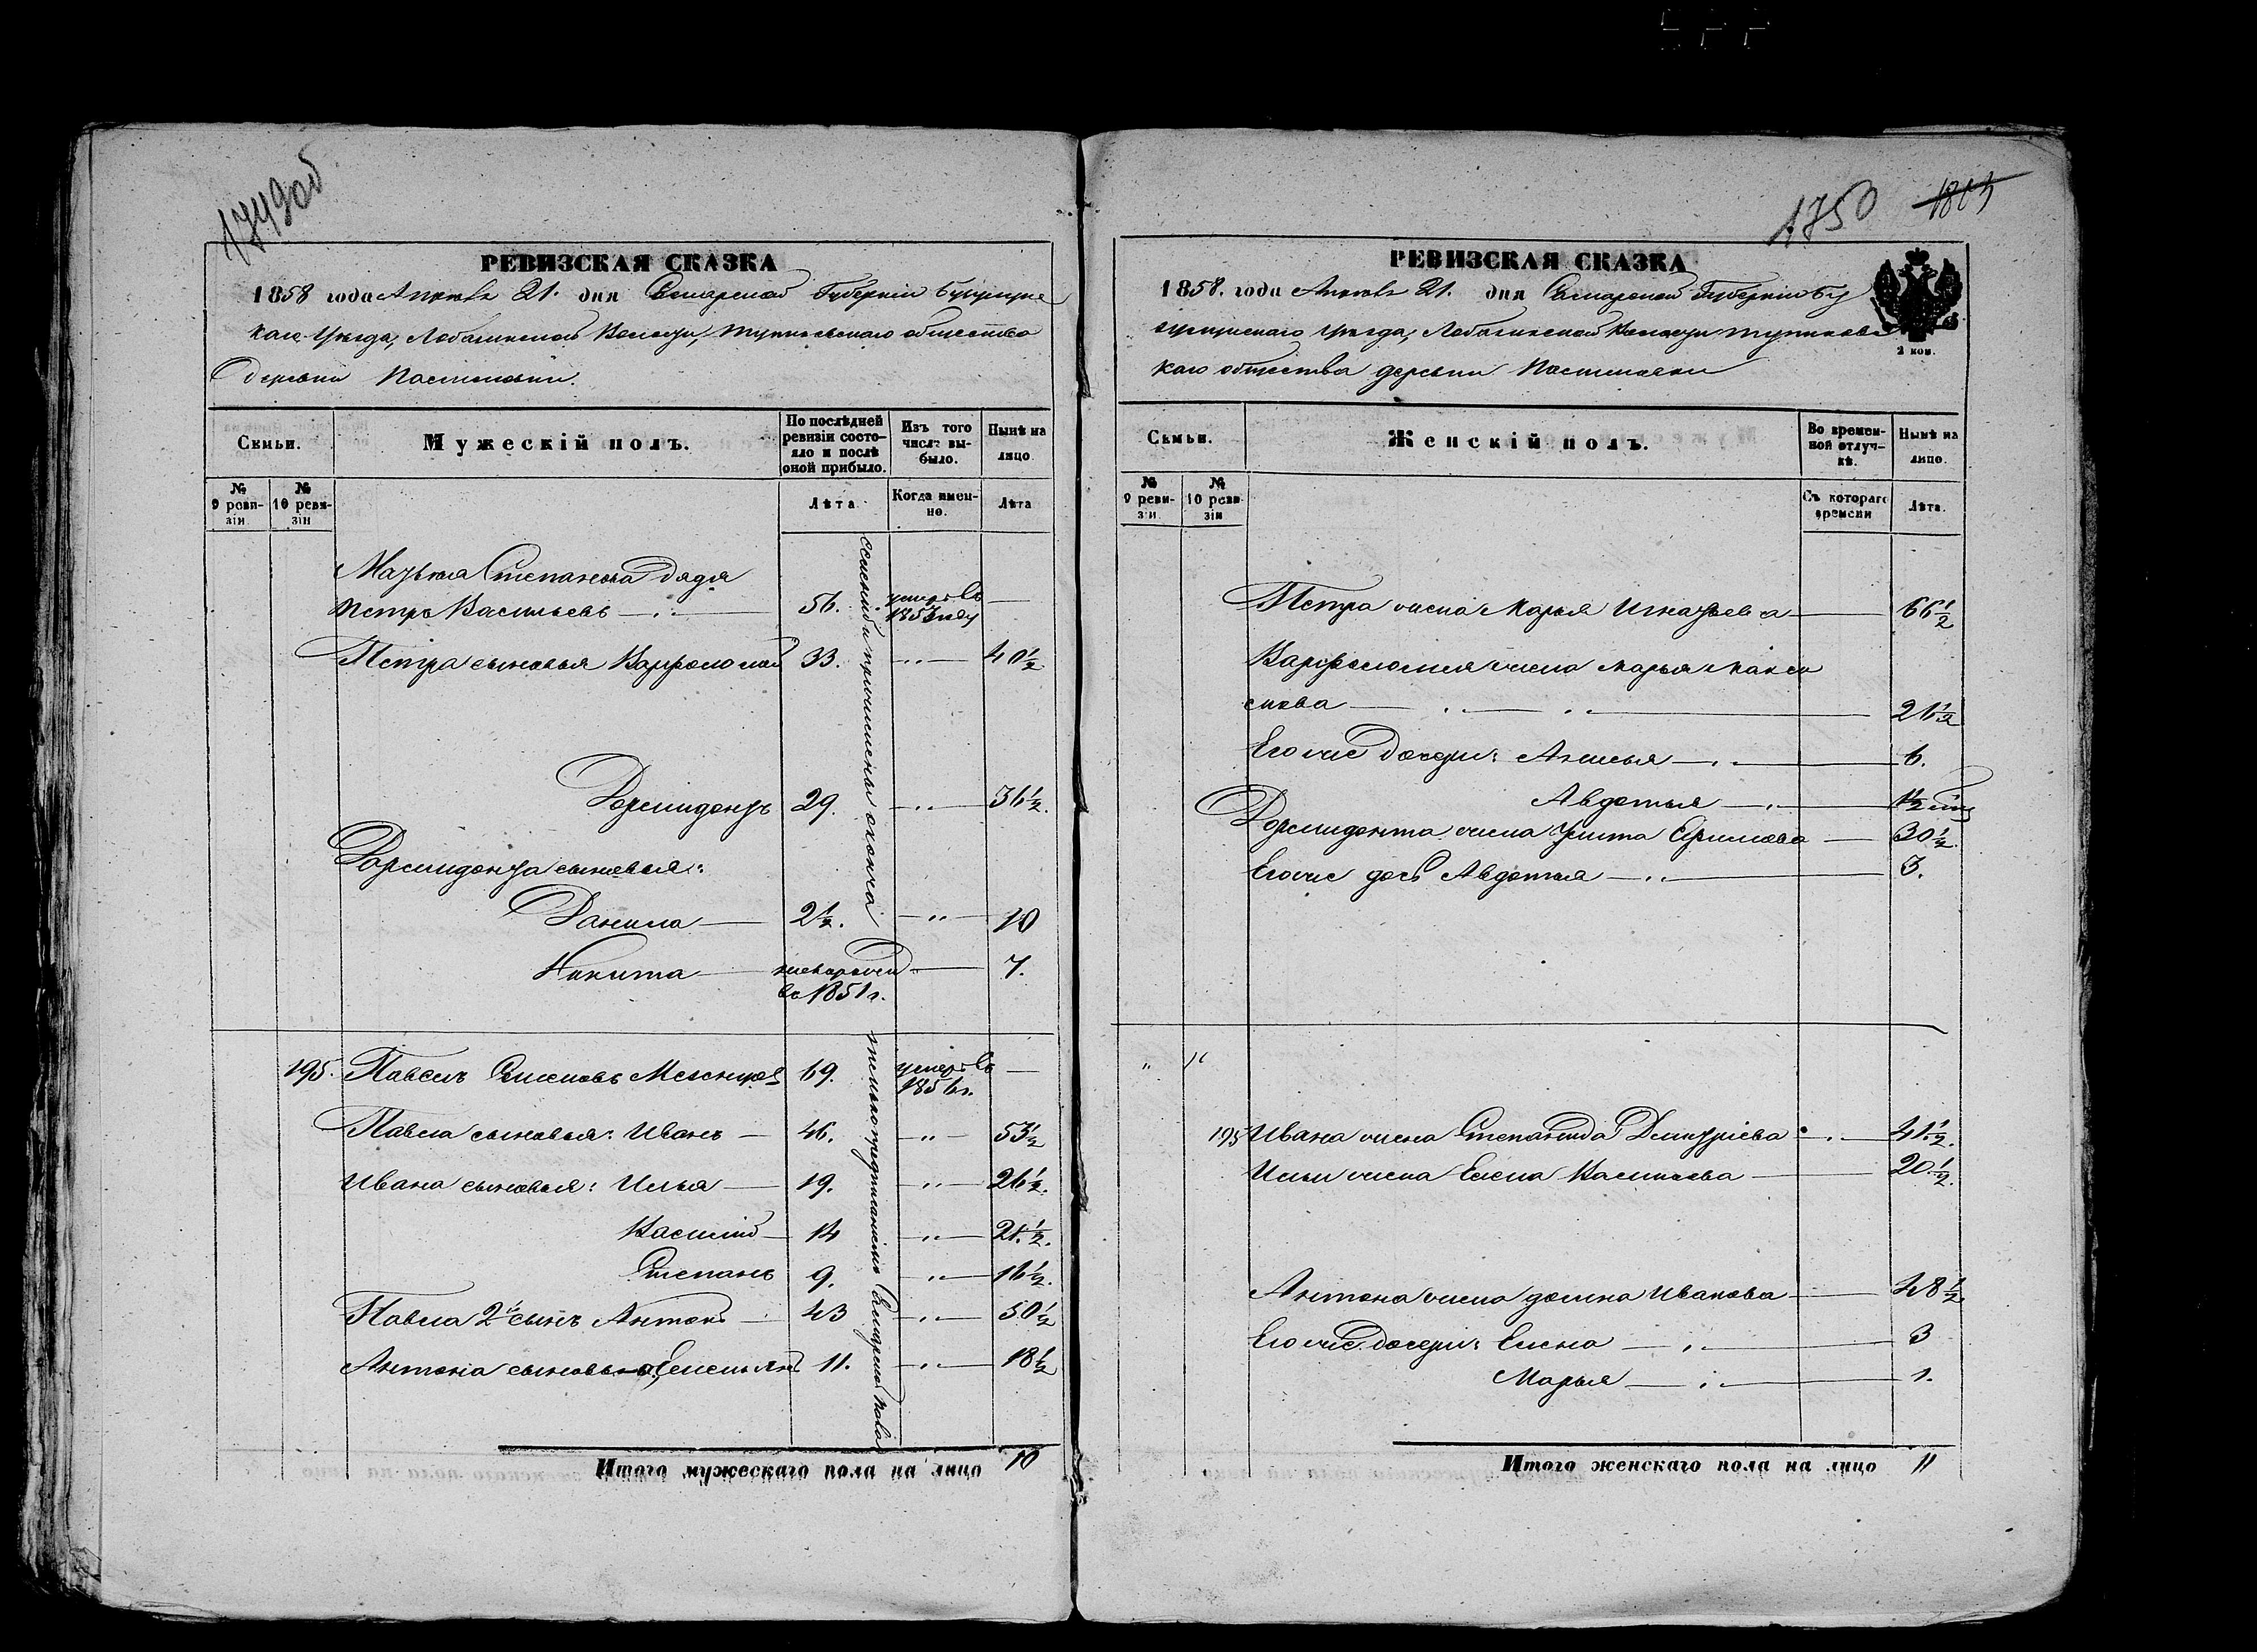 1749об
РЕВИЗСКАЯ СКАЗКА
1858 года Апреля 21. дня Самарской Губерніи Бузулукс
каго Уезда, Лобазинской Волости, общества
Деревни
Семьи.
Мужескій полъ.
По послѣдней ревизіи состояло и послѣ оной прибыло.
Изъ того числа выбыло.
Нынѣ на лицо.
№ 9 ревизіи
№ 10 ревизіи
Лѣта
Когда именно.
Лѣта
Степанова дядя
Петръ Васильевъ 56. умеръ въ 1853 году
Петра сыновья Варфоломей 33. 40½
Дормидонъ 29. 36½.
Дормидона сыновья:
Данила 2½. 10
Никита новорожден въ 1851 г. 7.
195. Павелъ Семеновъ 69. умеръ въ 1856 г.
Павла сыновья: Иванъ 46. 53½
Ивана сыновья: Илья 19. 26½.
Василій 14 21.½.
Степанъ 9. 16½.
Павла 2й сынъ Антонъ 43 50½
Антона сыновья, Емельянъ 11. 18½
Итого мужескаго пола на лицо 10
1750 1813
РЕВИЗСКАЯ СКАЗКА
1858. года Апреля 21. дня Самарской Губерніи Бу
зулукскаго Уезда, Лобазинской Волости
каго общества деревни
2 коп.
Семьи.
Женскій полъ.
Во временной отлучкѣ.
Нынѣ на лицо.
№ 9 ревизіи
№ 10 ревизіи
Съ котораго времени
Лѣта.
Петра жена Марья Игнатьева 66½
Варфоломея жена Марья Макси
мова 21½
Его же дочери: Аксинья 6.
Авдотья 1½
Дормидонта жена Улита Ефимова 30½.
Его же дочь Авдотья 3.
" "
195 Ивана жена Степанида Дмитріева 41½.
Ильи жена Елена Василіева 20½.
Антона жена Домна Иванова 48½
Его же дочери: Елена 3
Марья 1.
Итого женскаго пола на лицо 11